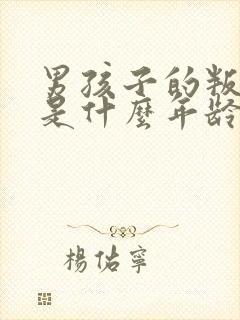 男孩子的叛
是什麼年龄
楊佑寧